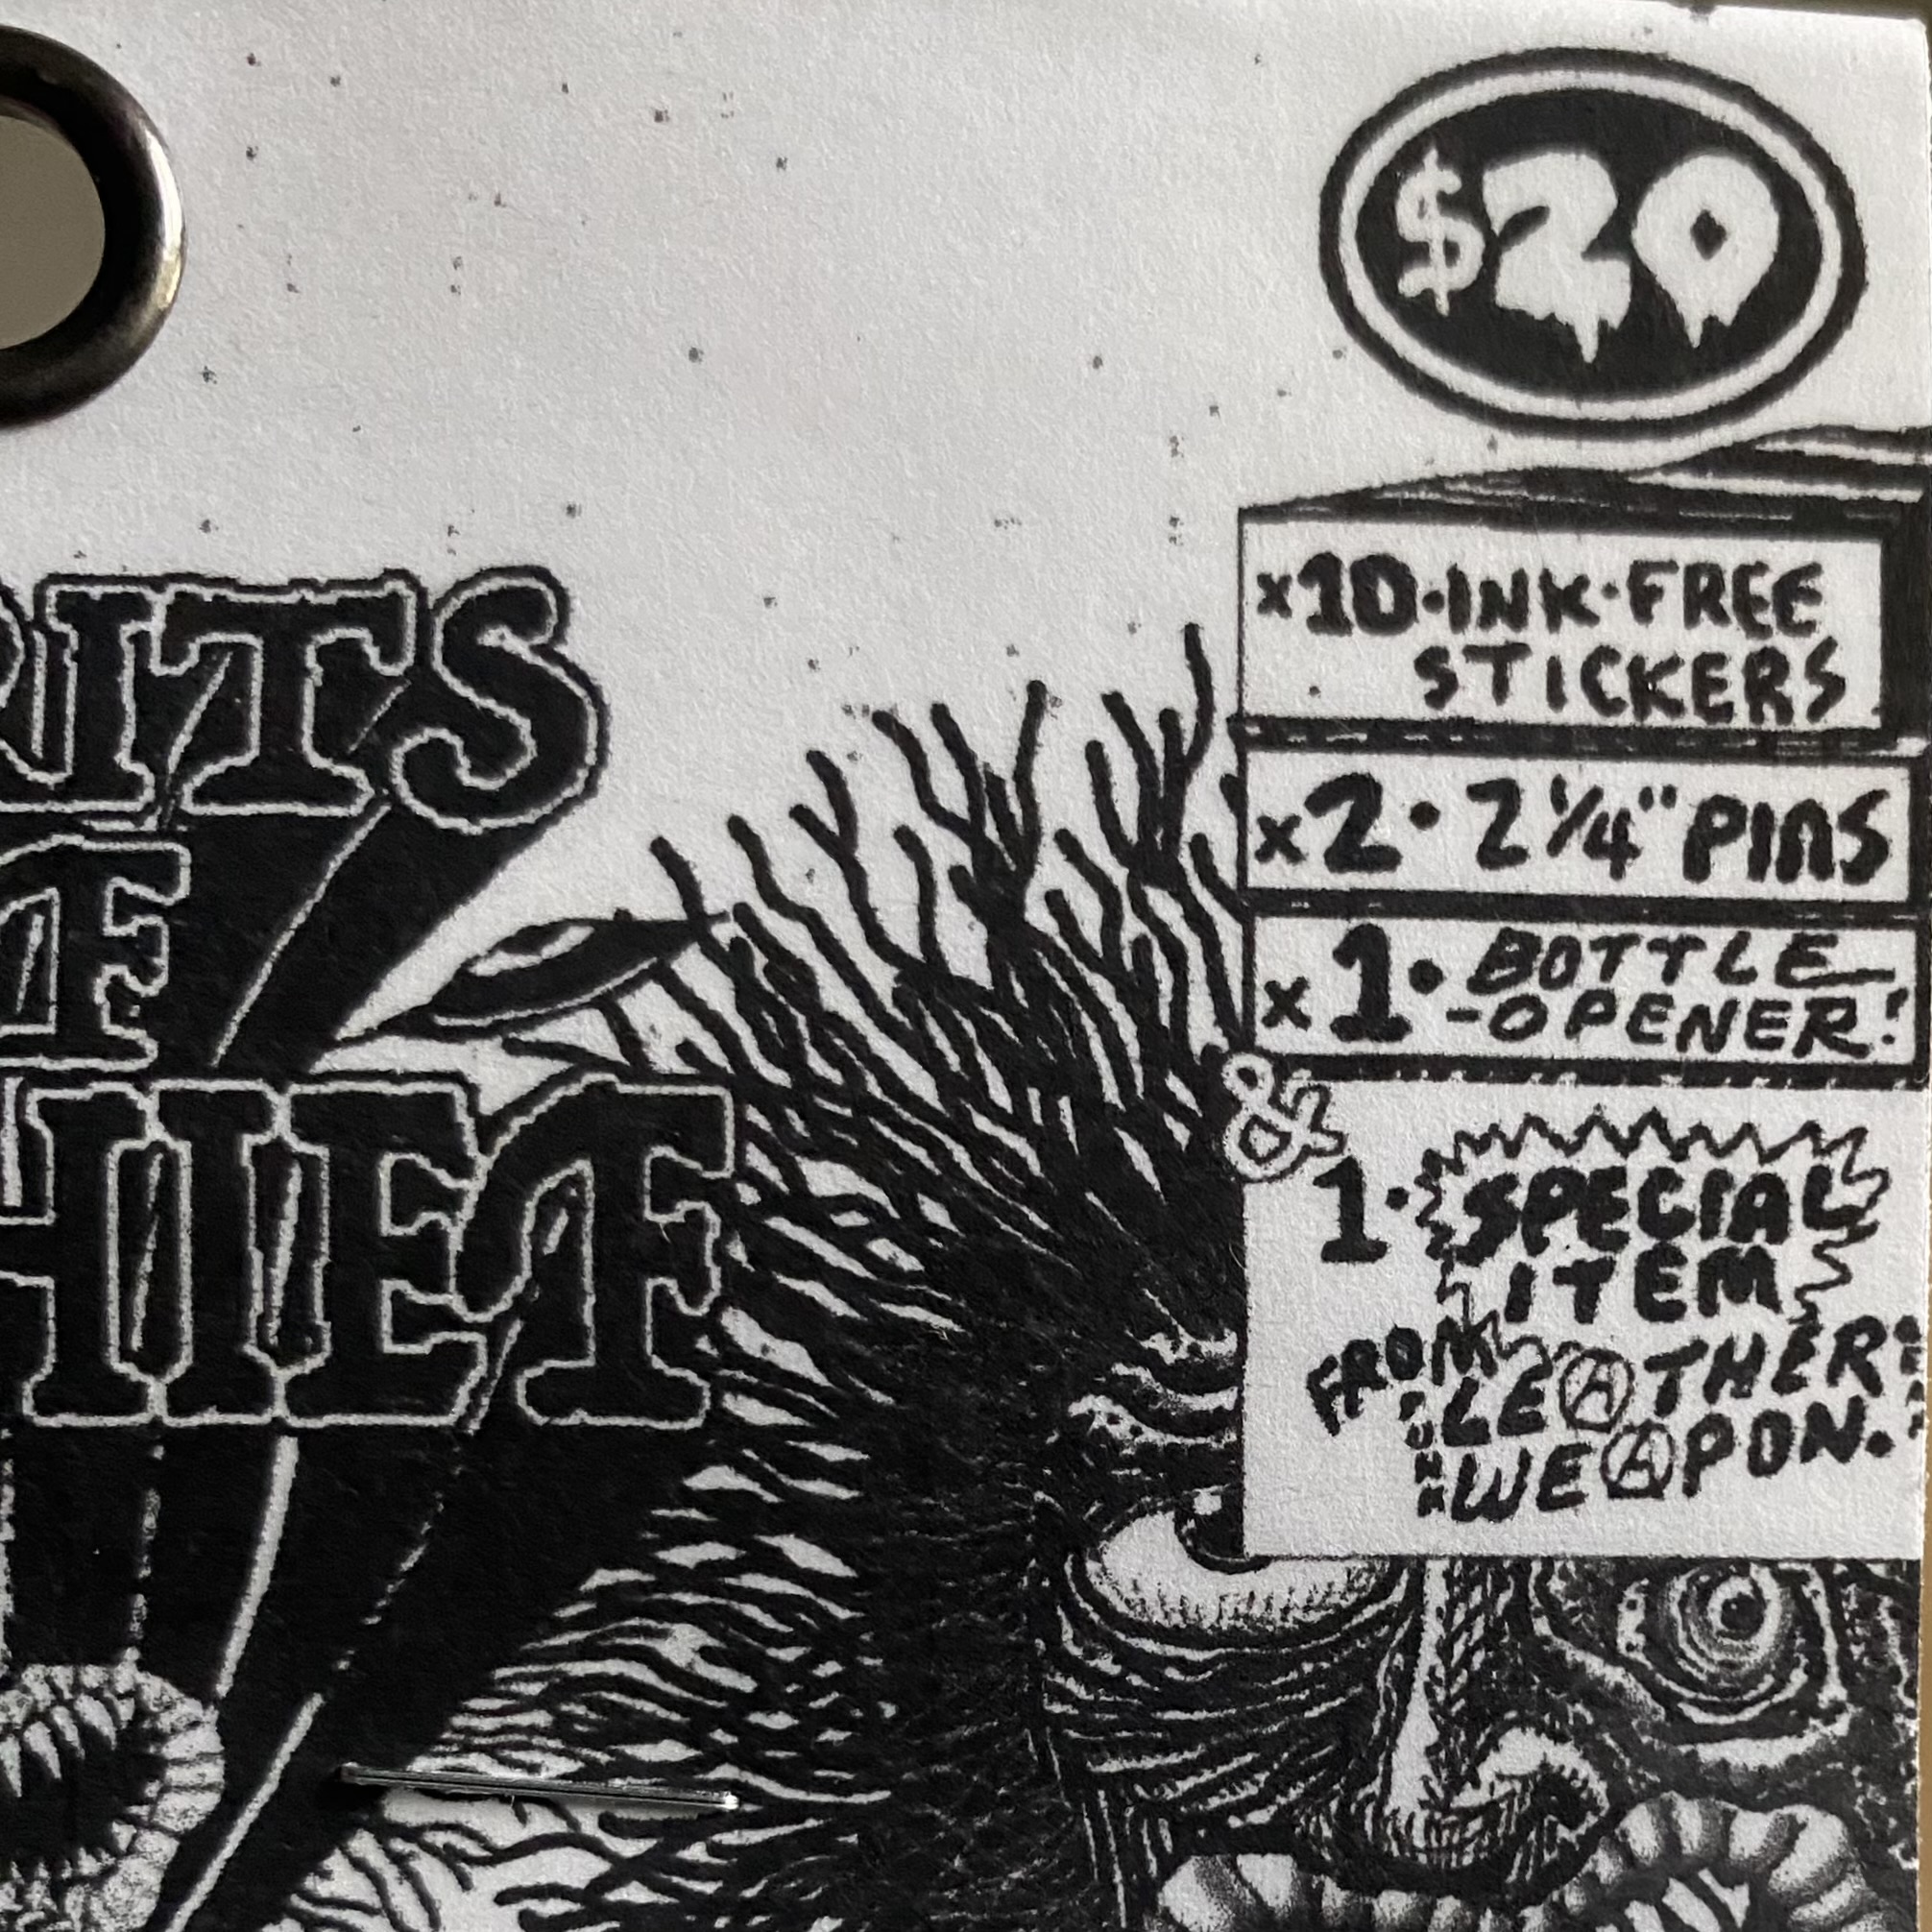 $20
RITS
OF
HIEF
x10·INK·FREE
STICKERS
x2·2 1/4" PINS
x1·BOTTLE
-OPENER!
&
1·SPECIAL
ITEM
FROM
LEⒶTHER
WEⒶPON.